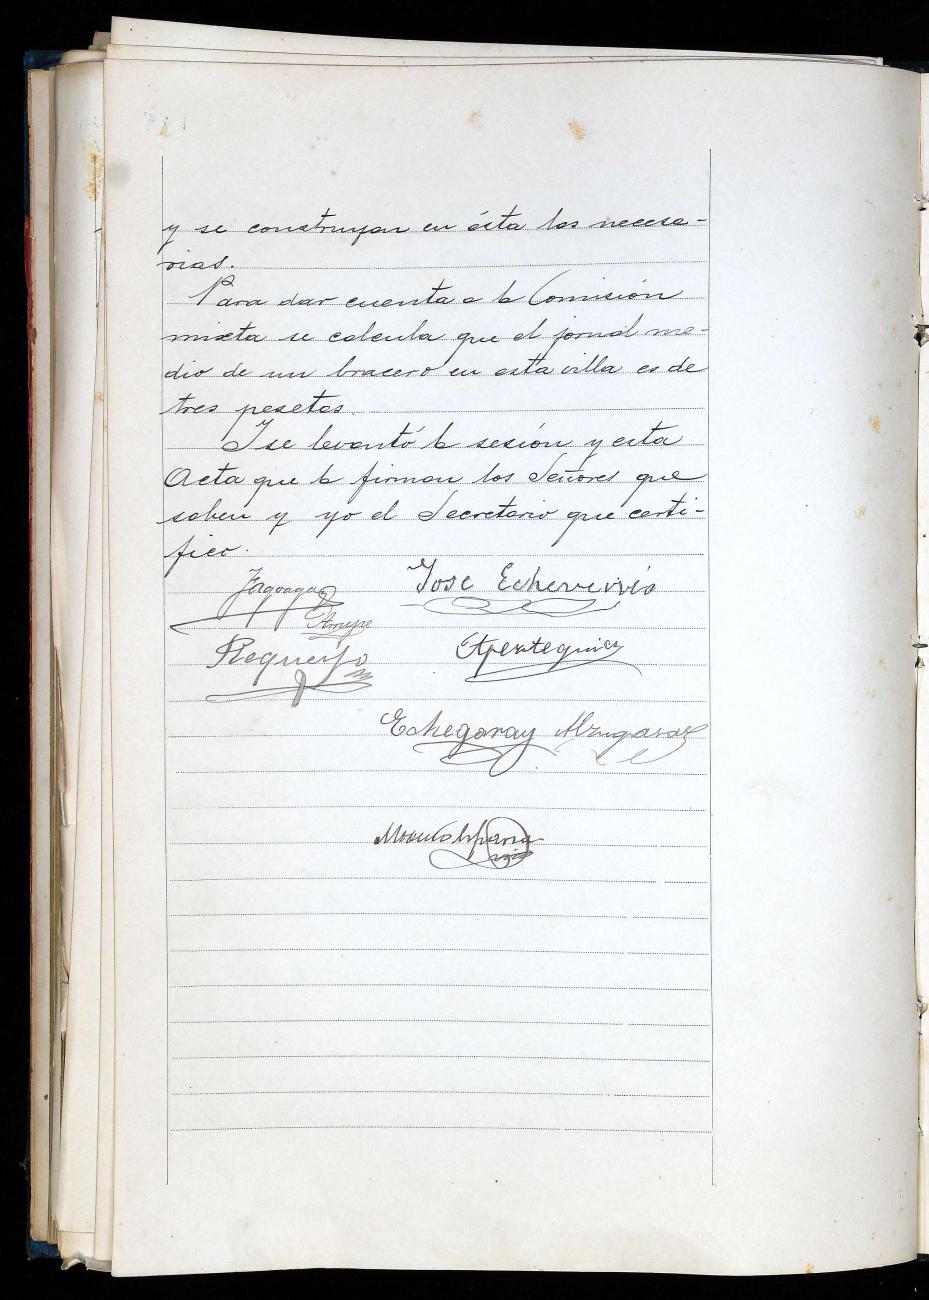 y se construyan en ésta las necesa-
rias.
Para dar cuenta a la Comisión
mixta se calcula que el jornal me-
dio de un bracero en esta villa es de
tres pesetas.
Y se levantó la sesión y esta
Acta que la firman los Señores que
saben y yo el Secretario que certi-
fico.
Jose Echeverria
Requejo
Apezteguia
Echegaray